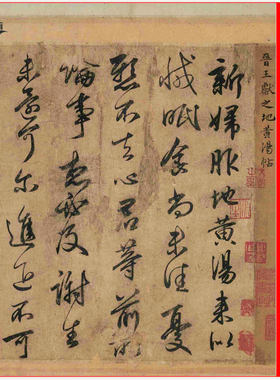 晉王獻之地黃湯帖
新婦服地黃湯来似
減眠食尚未佳憂
懸不去心君等前所
論事想必及謝生
未還可尔進退不可